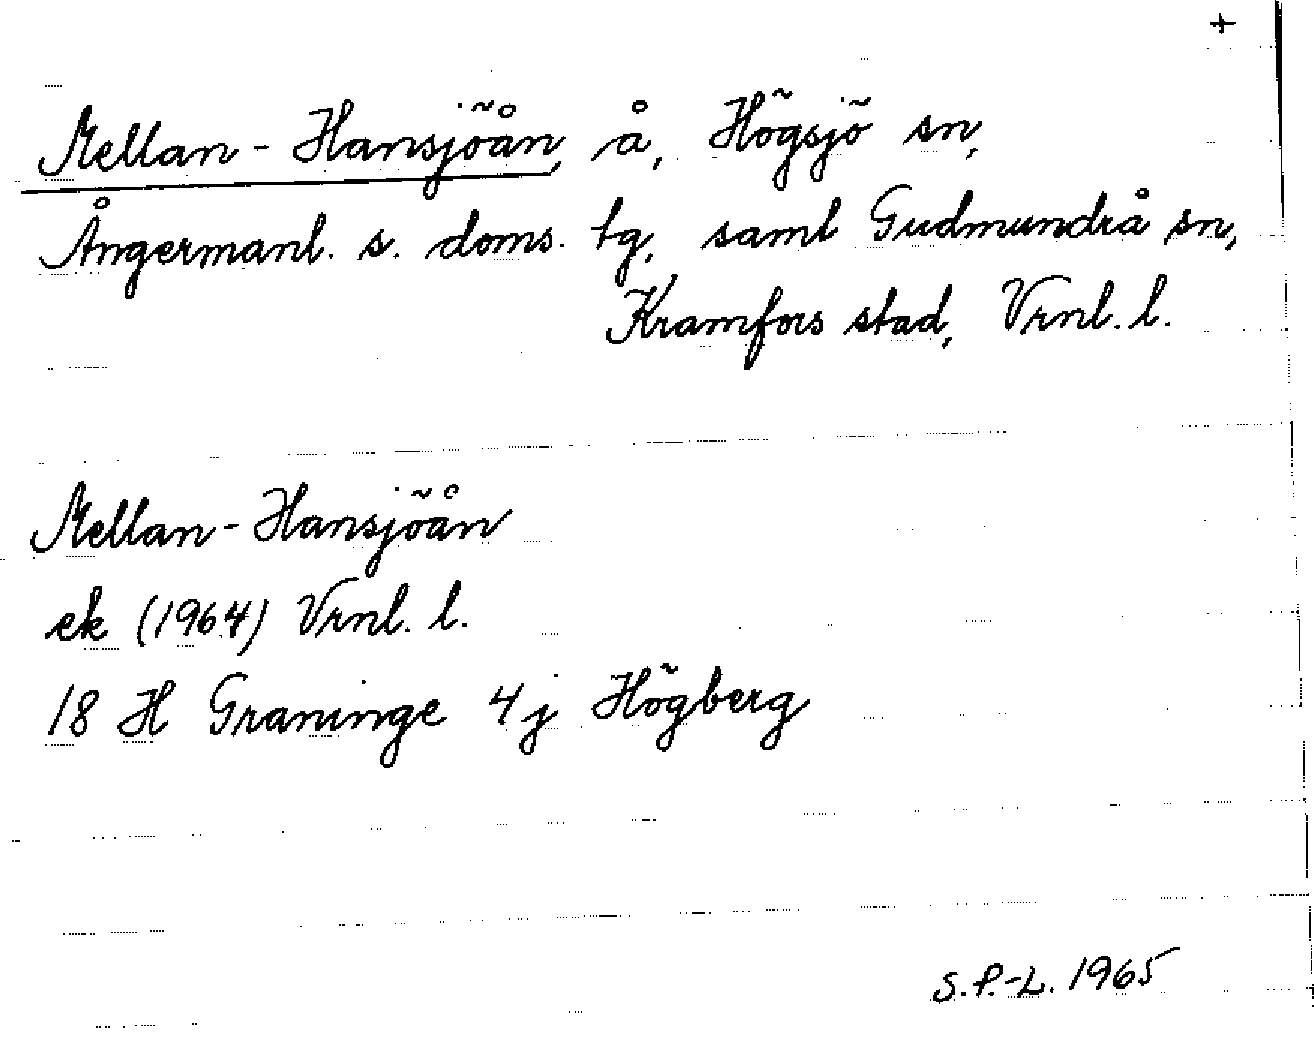 +
Mellan-Hansjöån, å, Högsjö sn,
Ångermanl. s. doms. tg, samt Gudmundrå sn,
Kramfors stad, Vrnl. l.
Mellan-Hansjöån
ek (1964) Vrnl. l.
18 H Graninge 4j Högberg
S.P.-L. 1965